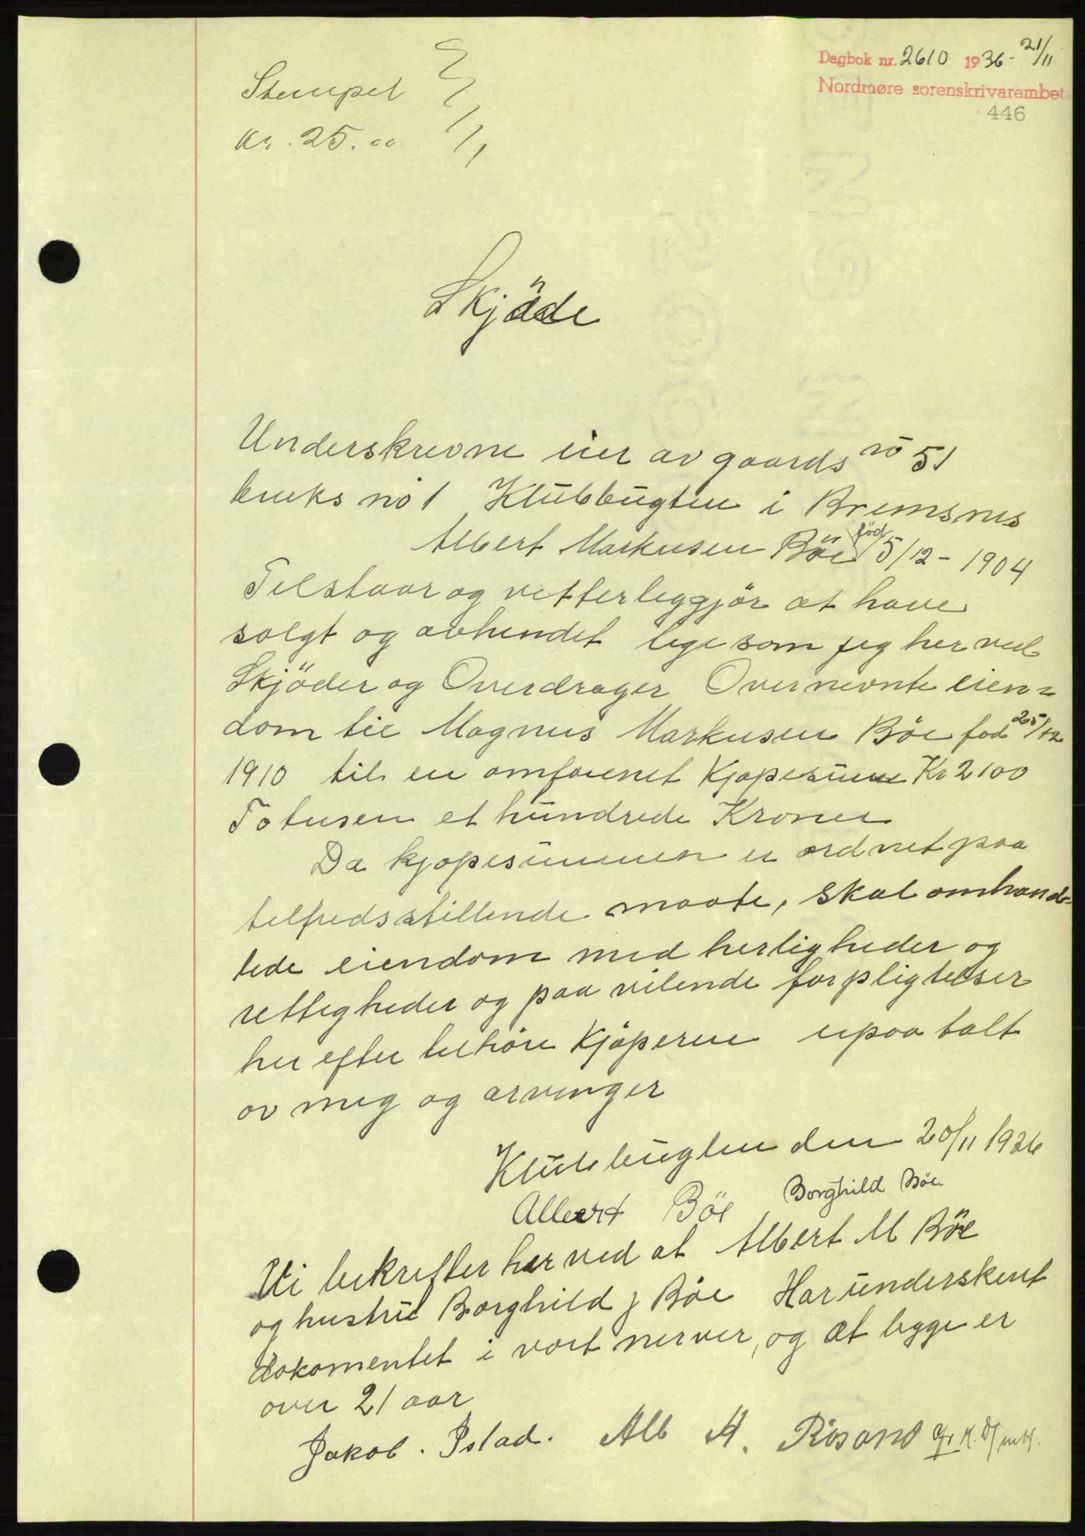 Dagbok nr. 2610 1936 - 21/11
Nordmøre sorenskrivarembet
446
Stempel
Kr. 25.00
Skjöde
Underskrevne eier av gaards no 51
bruks no 1 Klubbugten i Bremsnes
Albert Markusen Böe föd 5/12 - 1904
Tilstaar og vetterleggjör at have
solgt og avhendet lige som jeg her ved
Skjöder og Overdrager Overnevnte eien=
dom til Magnus Markusen Böe fød 25/12
1910 til en omforenet Kjøpesum Kr 2100
Totusen et hundrede Kroner
Da kjøpesummen er ordnet paa
tilfredsstillende maate, skal omhand-
lede eiendom med herligheder og
rettigheder og paa vilende forpligtelser
her efter tilhöre Kjöperen upaa talt
av meg og arvinger
Klubbugten den 20/11 1936
Albert Böe Borghild Böe
Vi bekrefter her ved at Albert M Böe
og hustru Borghild J Böe Har underskevt
dokomentet i vort nerver, og at begge er
over 21 aar
Jakob. Istad. Alb M. Rosand